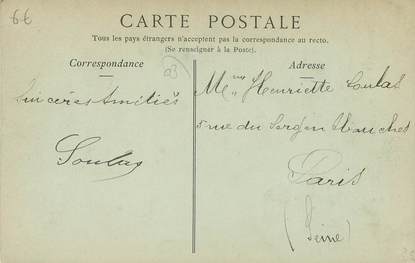 66
CARTE POSTALE
Tous les pays étrangers n'acceptent pas la correspondance au recto.
(Se renseigner à la Poste).
Correspondance
Adresse
93
Sincères Amitiés
Soulas
Henriette Soulas
rue du
Paris
(Seine)